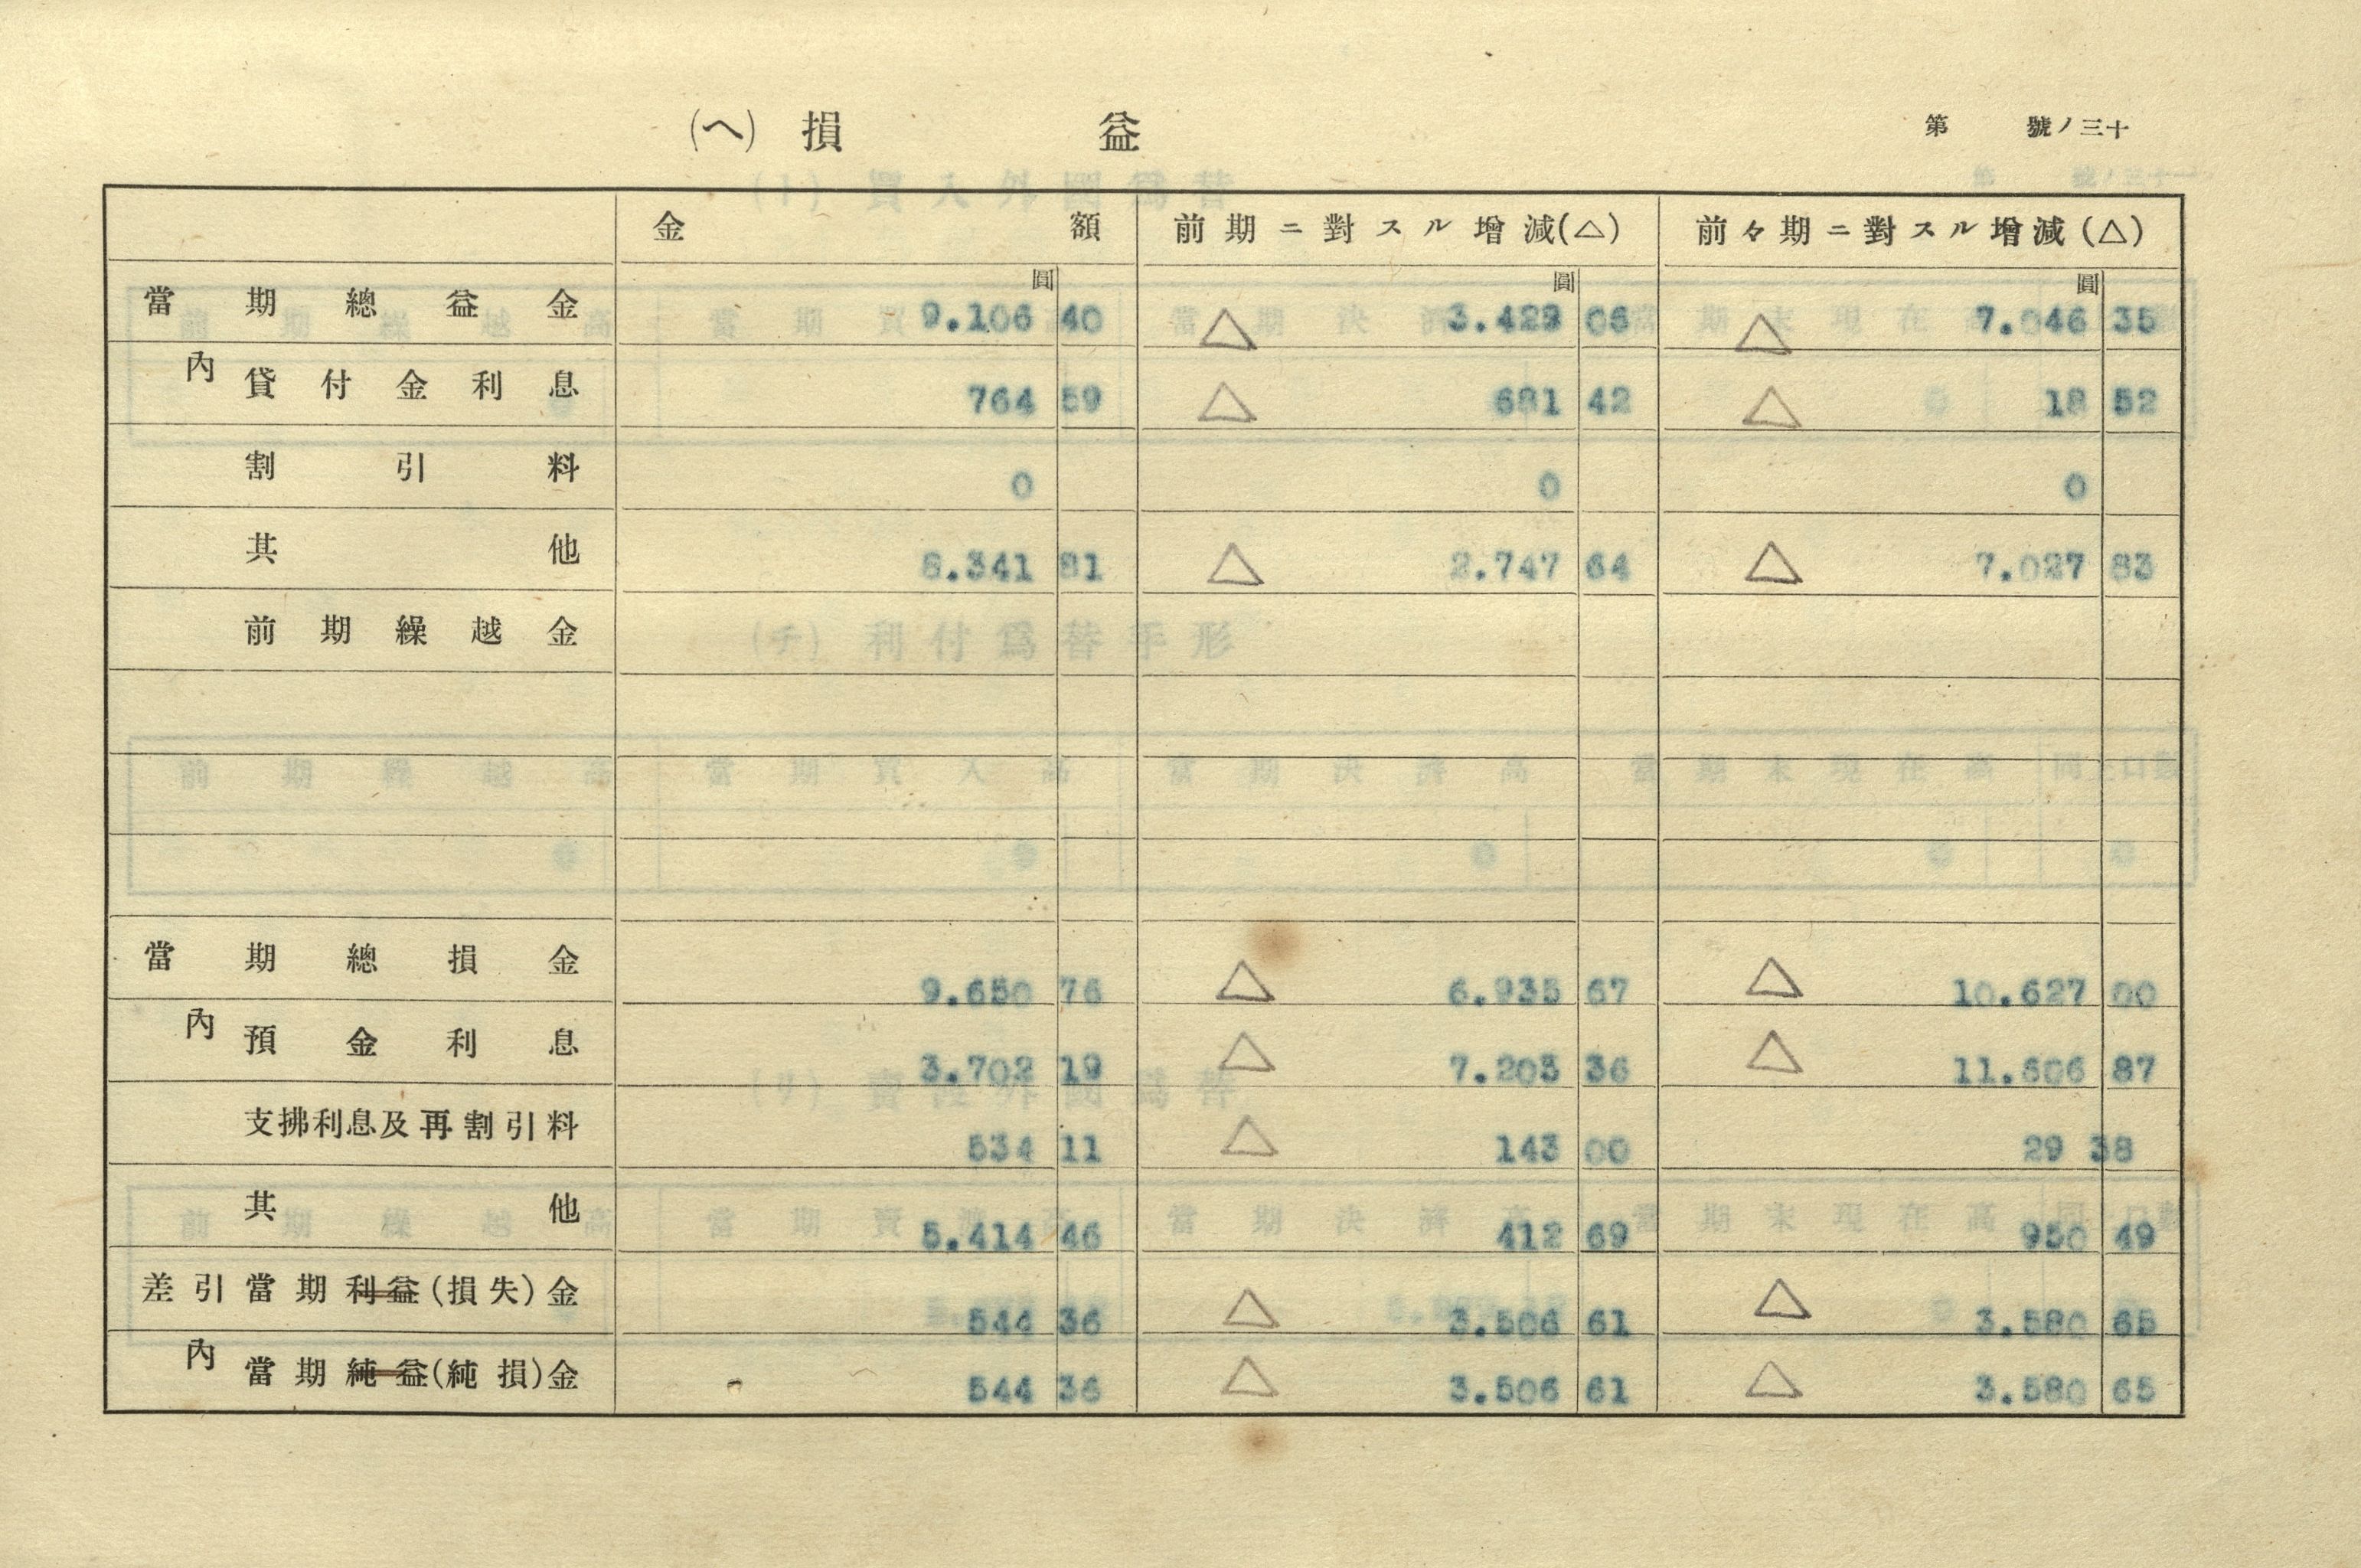 (ヘ) 損 益
第 號ノ三十
金 額 前期ニ對スル增減(△) 前々期ニ對スル增減(△)
圓 圓 圓
當期總益金 9.106 40 △ 3.429 06 △ 7.046 35
內 貸付金利息 764 59 △ 681 42 △ 18 52
割引料 0 0 0
其他 8.341 81 △ 2.747 64 △ 7.027 83
前期繰越金
當期總損金 9.650 76 △ 6.935 67 △ 10.627 00
內 預金利息 3.702 19 △ 7.205 36 △ 11.606 87
支拂利息及再割引料 534 11 △ 143 00 29 38
其他 5.414 46 412 69 950 49
差引當期利益(損失)金 544 36 △ 3.506 61 △ 3.580 65
內 當期純益(純損)金 544 36 △ 3.506 61 △ 3.580 65